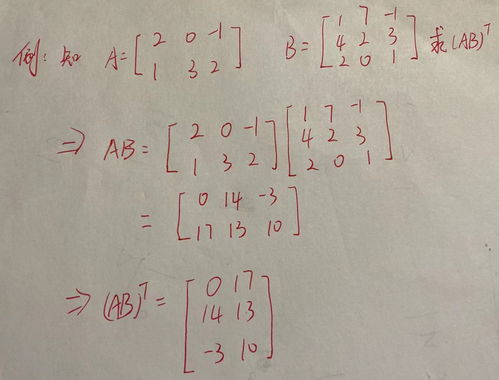 例: 知 A=[2 0 -1; 1 3 2] B=[1 7 -1; 4 2 3; 2 0 1] 求(AB)^T
⇒ AB = [2 0 -1; 1 3 2][1 7 -1; 4 2 3; 2 0 1]
= [0 14 -3; 17 13 10]
⇒ (AB)^T = [0 17; 14 13; -3 10]